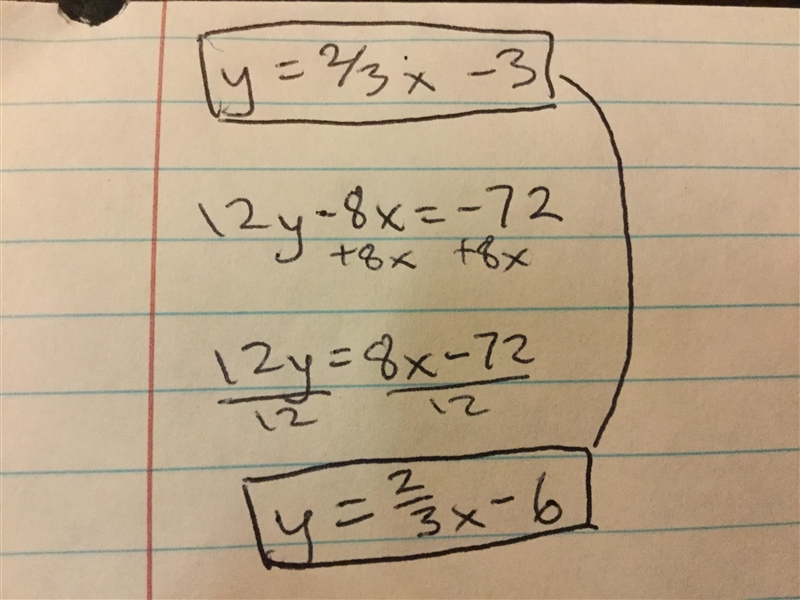 y = 2/3 x - 3
12y - 8x = -72
+8x +8x
12y = 8x - 72
12 12
y = 2/3 x - 6